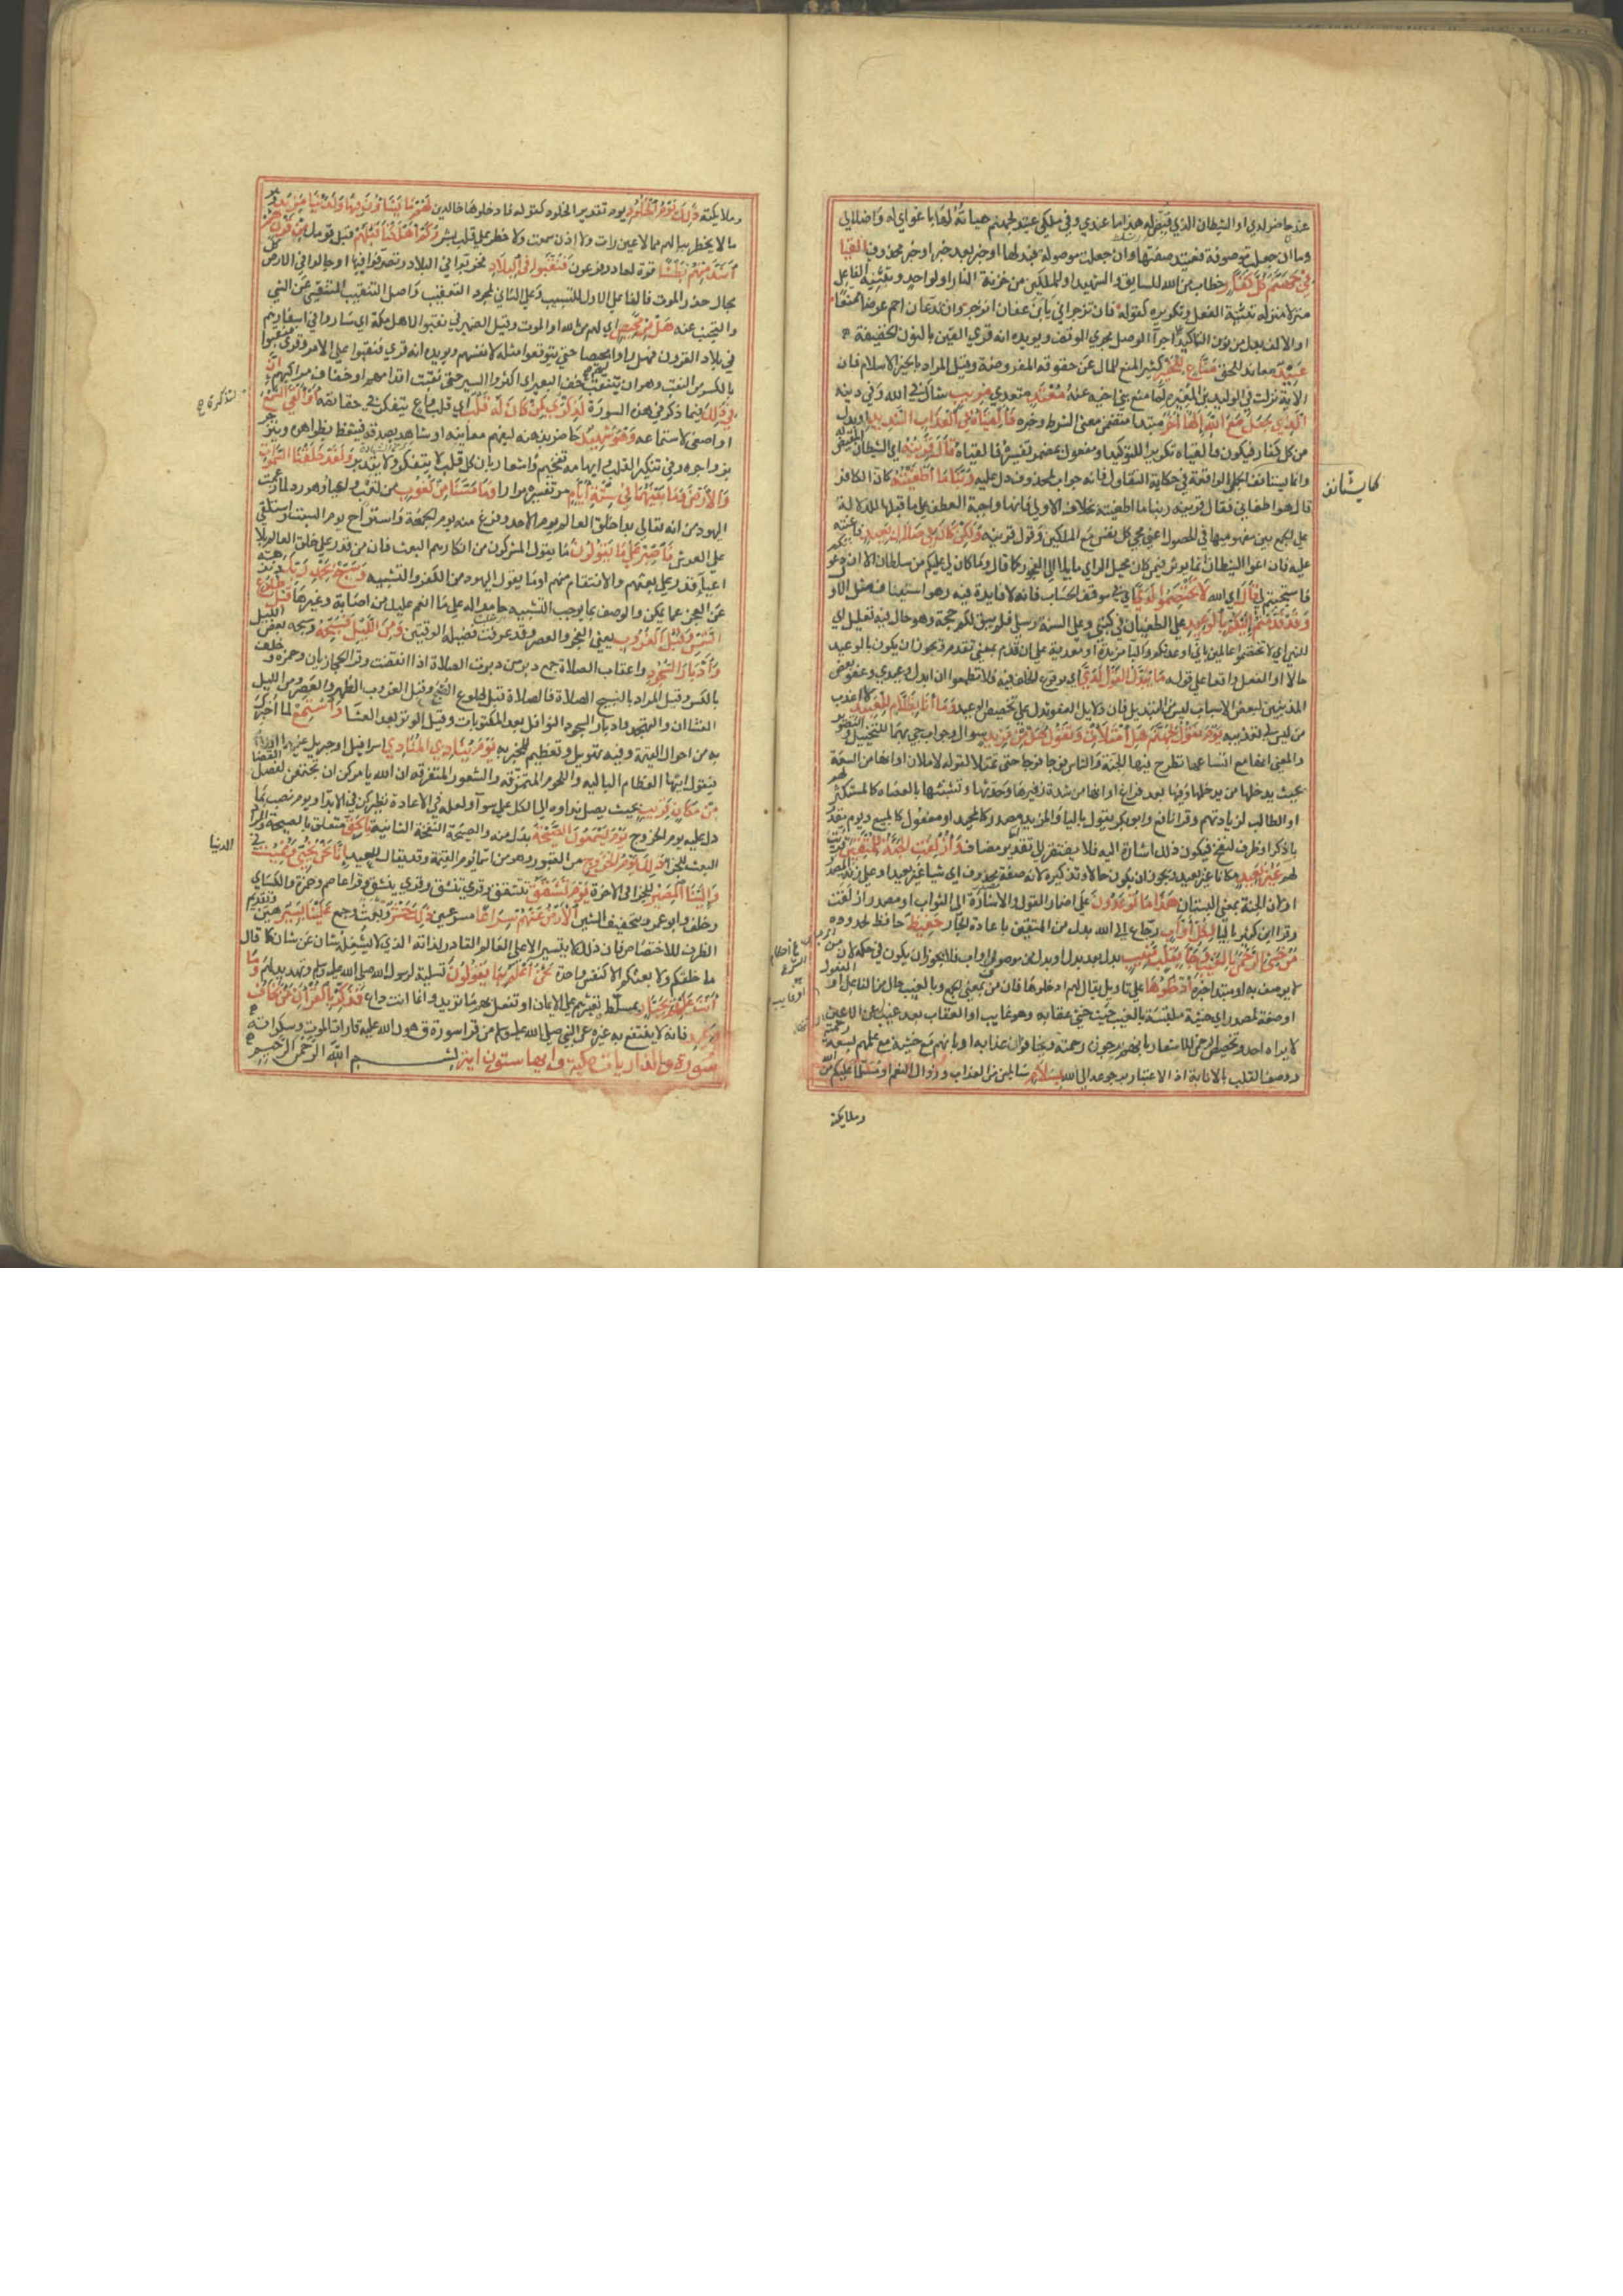 عندي حاضر لدي او الشيطان الذي قيض له هذا ما عندي وفي ملكي عتيد لجهنم هيأته لها باغوائي له واضلالي
وما ان جعلت موصوفة فعتيد صفتها وان جعلت موصولة فبدلها او خبر بعد خبر او خبر محذوف القيا
في جهنم كل كفار خطاب من الله للسايق والشهيد او لملكين من خزنة النار او لواحد وتثنية الفاعل
منزلة منزلة تثنية الفعل وتكريره كقوله فان تزجراني يا ابن عفان انزجر وان تدعان احم عرضا ممنعا
او الالف بدل من نون التاكيد اجراء الوصل مجرى الوقف ويويده انه قري القين بالنون الخفيفة
عنيد معاند للحق مناع للخير كثير المنع للمال عن حقوقه المفروضة وقيل المراد بالخير الاسلام فان
الاية نزلت في الوليد بن المغيرة لما منع بني اخيه عنه معتد متعدي مريب شاك في الله وفي دينه
الذي جعل مع الله الها آخر مبتدا متضمن معنى الشرط وخبره فالقياه في العذاب الشديد او بدل
من كل كفار فيكون فالقياه تكريرا للتوكيد او مفعول بمضمر يفسره فالقياه قال قرينه اي الشيطان المقيض له
وانما استانف كما يستانف الجمل الواقعة في حكاية التقاول فانه جواب لمحذوف دل عليه ربنا ما اطغيته كان الكافر
قال هو اطغاني فقال قرينه ربنا ما اطغيته بخلاف الاولى فانها واجبة العطف على ما قبلها للدلالة
على الجمع بين مفهوميهما في الحصول اعني مجي كل نفس مع الملكين وقول قرينه ولكن كان في ضلال بعيد فاعنته
عليه فان اغوا الشيطان انما يوثر فيمن كان مختل الراي مايلا الى الفجور كما قال وما كان لي عليكم من سلطان الا ان دعوتكم
فاستجبتم لي قال اي الله لا تختصموا لدي اي في موقف الحساب فانه لا فايدة فيه وهو استيناف مثل الاول
وقد قدمت اليكم بالوعيد على الطغيان في كتبي وعلى السنة رسلي فلم يبق لكم حجة وهو حال فيه تعليل للنهي
اي لا تختصموا عالمين باني اوعدتكم والبا مزيدة او معدية على ان قدم بمعنى تقدم ويجوز ان يكون بالوعيد
حالا والفعل واقعا على قوله ما يبدل القول لدي اي بوقوع الخلف فيه فلا تطمعوا ان ابدل وعيدي وعفو بعض
المذنبين لبعض الاسباب ليس من التبديل فان دلايل العفو تدل على تخصيص الوعيد وما انا بظلام للعبيد فاعذب
من ليس لي تعذيبه يوم نقول لجهنم هل امتلأت وتقول هل من مزيد سوال وجواب جي بهما للتخييل والتصوير
والمعنى انها مع اتساعها تطرح فيها الجنة والناس فوجا فوجا حتى تمتلا لقوله لاملان او انها من السعة
بحيث يدخلها من يدخلها وفيها بعد فراغ او انها من شدة زفيرها وحدتها وتشبثها بالعصاة كالمستكثر لهم
او الطالب لزيادتهم وقرا نافع وابو بكر يقول بالياء والمزيد مصدر كالمحيد او مفعول كالمبيع ويوم مقدر
باذكر او ظرف لنفخ فيكون ذلك اشارة اليه فلا يفتقر الى تقدير مضاف وازلفت الجنة للمتقين قربت
لهم غير بعيد مكانا غير بعيد ويجوز ان يكون حالا وتذكيره لانه صفة محذوف اي شيا غير بعيد او على زنة المصدر
او لان الجنة بمعنى البستان هذا ما توعدون على اضمار القول والاشارة الى الثواب او مصدر ازلفت
وقرا ابن كثير باليا لكل اواب رجاع الى الله بدل من المتقين باعادة الجار حفيظ حافظ لحدوده
من خشي الرحمن بالغيب وجاء بقلب منيب بدل بعد بدل او بدل من موصوف اواب فلا يجوز ان يكون في حكمه لان من
لا يوصف به او مبتدا خبره ادخلوها على تاويل يقال لهم ادخلوها فان من بمعنى الجمع وبالغيب حال من الفاعل او المفعول
او صفة لمصدر اي خشية ملتبسة بالغيب حيث خشي عقابه وهو غايب او العقاب بعد غيب او هو غايب عن الاعين
لا يراه احد وتخصيص الرحمن للاشعار بانهم رجون رحمته ويخافون عذابه او بانهم مع خشية مع علمهم بسعة رحمته
ووصف القلب بالانابة اذ الاعتبار برجوعه الى الله بسلام سالمين من العذاب وزوال النعم او مسلما عليكم من الله
وملايكته
كما يستانف
وملايكته ذلك يوم الخلود يوم تقدير الخلود كقوله فادخلوها خالدين لهم ما يشاؤن فيها ولدينا مزيد وهو
ما لا يخطر ببالهم مما لا عين رات ولا اذن سمعت ولا خطر على قلب بشر وكم اهلكنا قبلهم قبل قومك من قرن هم
اشد منهم بطشا قوة كعاد وفرعون فنقبوا في البلاد فخرقوا في البلاد وتصرفوا فيها او جالوا في الارض كل
مجال حذر الموت فالفا على الاول للتسبيب وعلى الثاني لمجرد التعقيب واصل التنقيب التنقير عن الشي
والبحث عنه هل من محيص اي لهم من الله او الموت وقيل الضمير في نقبوا لاهل مكة اي ساروا في اسفارهم
في بلاد القرون فهل راوا محيصا حتى يتوقعوا مثله لانفسهم ويويده انه قري فنقبوا على الامر وقري فنقبوا
بالكسر من النقب وهو ان ينتقب خف البعير اي اكثروا السير حتى نقبت اقدامهم او خفاف مراكبهم ان
في ذلك فيما ذكر في هذه السورة لذكرى لمن كان له قلب اي قلب واع يتفكر في حقائقه او القى السمع
او اصغى لاستماعه وهو شهيد حاضر بذهنه ليفهم معانيه او شاهد بصدقه فيتعظ بظواهره وينزجر
بزواجره وفي تنكير القلب وابهامه تفخيم واشعار بان كل قلب لا يتفكر ولا يتدبر ولقد خلقنا السموات
والارض وما بينهما في ستة ايام مر تفسيره مرارا وما مسنا من لغوب من تعب واعيا وهو رد لما زعمت
اليهود من انه تعالى بدا خلق العالم يوم الاحد وفرغ منه يوم الجمعة واستراح يوم السبت واستلقى
على العرش فاصبر على ما يقولون ما يقول المشركون من انكارهم البعث فان من قدر على خلق العالم بلا
اعيا قدر على بعثهم والانتقام منهم او ما يقول اليهود من الكفر والتشبيه وسبح بحمد ربك ونزهه
عن العجز عما يمكن والوصف بما يوجب التشبيه حامدا له على ما انعم عليك من اصابة وغيرها قبل طلوع
الشمس وقبل الغروب يعني الفجر والعصر وقد عرفت فضيلة الوقتين ومن الليل فسبحه وسبحه بعض الليل
وادبار السجود واعقاب الصلاة جمع دبر من ادبرت الصلاة اذا انقضت وقرا الحجازيان وحمزة وخلف
بالكسر وقيل المراد بالتسبيح الصلاة فالصلاة قبل طلوع الصبح وقبل الغروب الظهر والعصر ومن الليل
العشاان والتهجد وادبار السجود النوافل بعد المكتوبات وقيل الوتر بعد العشا واستمع لما اخبرك
به من احوال القيمة وفيه تهويل وتعظيم للمخبر به يوم ينادي المنادي اسرافيل او جبريل عليهما السلام
فيقول ايتها العظام البالية واللحوم المتمزقة والشعور المتفرقة ان الله يامركن ان تجتمعن لفصل القضا
من مكان قريب بحيث يصل نداوه الى الكل على سوا ولعله في الاعادة نظير كن في الابدا ويوم نصب بما
دل عليه يوم الخروج يوم يسمعون الصيحة بدل منه والصيحة النفخة الثانية بالحق متعلق بالصيحة والمراد
البعث للجزا ذلك يوم الخروج من القبور وهو من اسما يوم القيمة وقد يقال للعيد انا نحن نحيي ونميت في
والينا المصير للجزا في الاخرة يوم تشقق تتشقق وقري تنشق وقرا عاصم وحمزة والكساي
وخلف وابو عمرو بتخفيف الشين الارض عنهم سراعا مسرعين ذلك حشر وبعث وجمع علينا يسير هين وتقديم
الظرف للاختصاص فان ذلك لا يتيسر الا على العالم القادر لذاته الذي لا يشغله شان عن شان كما قال
ما خلقكم ولا بعثكم الا كنفس واحدة نحن اعلم بما يقولون تسلية لرسول الله صلى الله عليه وسلم وتهديد لهم وما
انت عليهم بجبار بمسلط تقسرهم على الايمان او تفعل بهم ما تريد وانما انت داع فذكر بالقرآن من يخاف
وعيد فانه لا ينتفع به غيره عن النبي صلى الله عليه وسلم من قرا سورة ق هون الله عليه تارات الموت وسكراته
سورة والذاريات مكية وايها ستون اية بسم الله الرحمن الرحيم
الدنيا